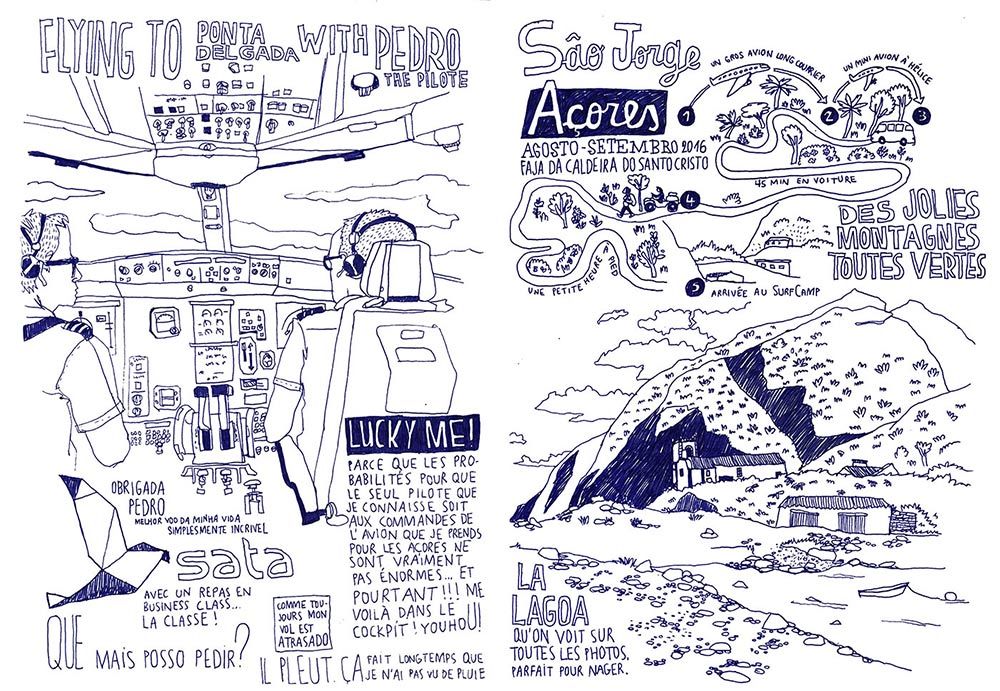 FLYING TO PONTA DELGADA WITH PEDRO
THE PILOTE
LUCKY ME!
PARCE QUE LES PRO-
BABILITÉS POUR QUE
LE SEUL PILOTE QUE
JE CONNAISSE SOIT
AUX COMMANDES DE
L'AVION QUE JE PRENDS
POUR LES AÇORES NE
SONT VRAIMENT
PAS ÉNORMES... ET
POURTANT!!! ME
VOILÀ DANS LE
COCKPIT! YOUHOU!
OBRIGADA
PEDRO
MELHOR VOO DA MINHA VIDA
SIMPLESMENTE INCRIVEL
sata
AVEC UN REPAS EN
BUSINESS CLASS...
LA CLASSE!
QUE MAIS POSSO PEDIR?
COMME TOU-
JOURS MON
VOL EST
ATRASADO
IL PLEUT. ÇA FAIT LONGTEMPS QUE
JE N'AI PAS VU DE PLUIE
São Jorge
Açores
AGOSTO-SETEMBRO 2016
FAJA DA CALDEIRA DO SANTO CRISTO
UN GROS AVION LONG COURRIER
UN MINI AVION À HÉLICE
1
2
3
45 MIN EN VOITURE
4
UNE PETITE HEURE À PIED
5 ARRIVÉE AU SURFCAMP
DES JOLIES
MONTAGNES
TOUTES VERTES
LA
LAGOA
QU'ON VOIT SUR
TOUTES LES PHOTOS.
PARFAIT POUR NAGER.